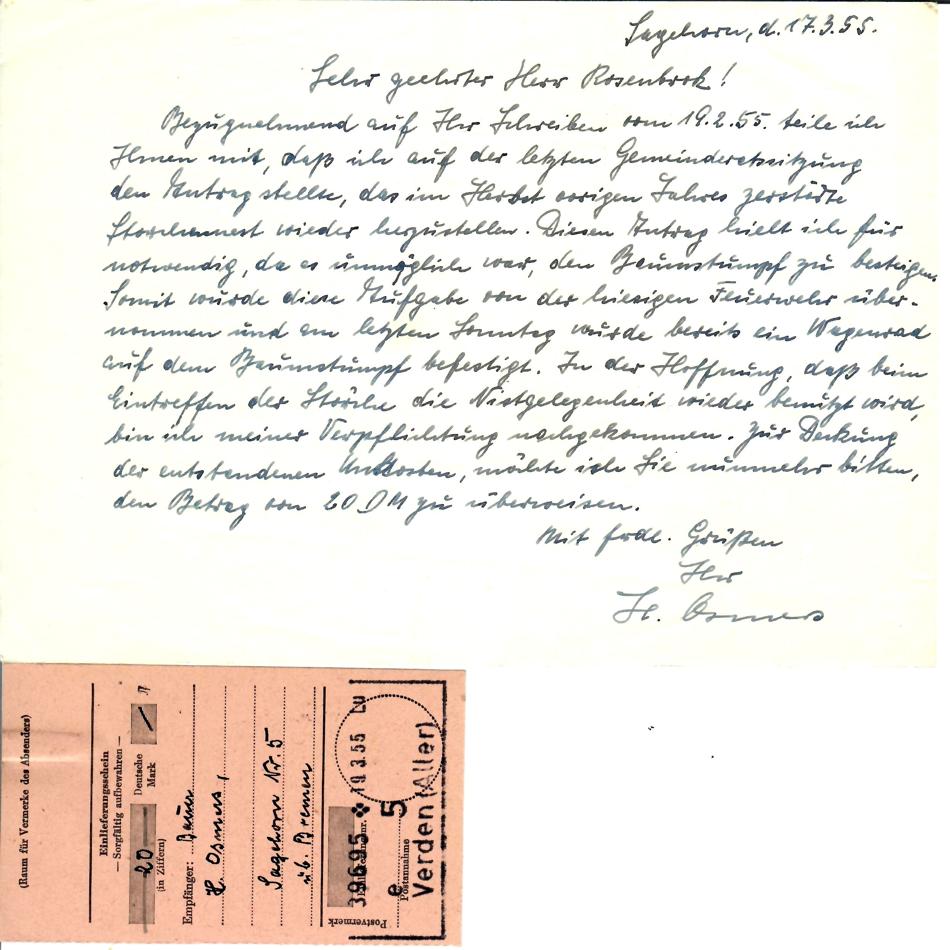 Sagehorn, d. 17.3.55.
Sehr geehrter Herr Rosenbrok!
Bezugnehmend auf Ihr Schreiben vom 19.2.55. teile ich
Ihnen mit, daß ich auf der letzten Gemeinderatssitzung
den Antrag stellte, das im Herbst vorigen Jahres zerstörte
Storchennest wieder herzustellen. Diesen Antrag hielt ich für
notwendig, da es unmöglich war, den Baumstumpf zu besteigen.
Somit wurde diese Aufgabe von der hiesigen Feuerwehr über-
nommen und am letzten Sonntag wurde bereits ein Wagenrad
auf dem Baumstumpf befestigt. In der Hoffnung, daß beim
Eintreffen der Störche die Nistgelegenheit wieder benutzt wird,
bin ich meiner Verpflichtung nachgekommen. Zur Deckung
der entstandenen Unkosten, möchte ich Sie nunmehr bitten,
den Betrag von 20 DM zu überweisen.
Mit frdl. Grüßen
Ihr
H. Osmers
(Raum für Vermerke des Absenders)
Einlieferungsschein
— Sorgfältig aufbewahren —
20 Deutsche Mark
(in Ziffern)
Empfänger: Bauer
H. Osmers,
Sagehorn Nr. 5
üb. Bremen
39695
19.3.55
e 5
Postannahme
Verden (Aller)
Postvermerk